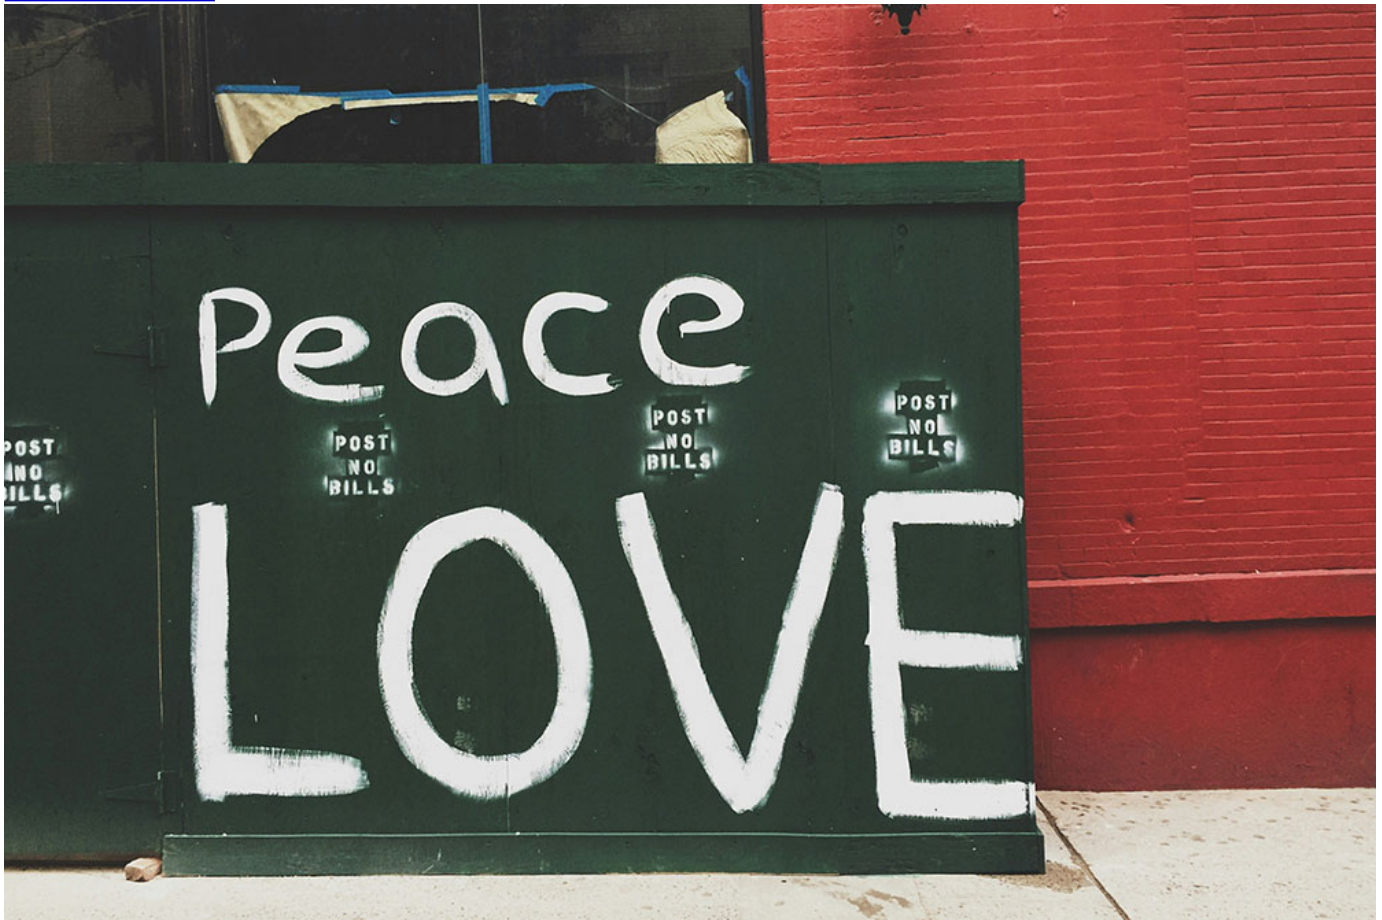 Peace
POST
NO
BILLS
POST
NO
BILLS
POST
NO
BILLS
POST
NO
BILLS
LOVE